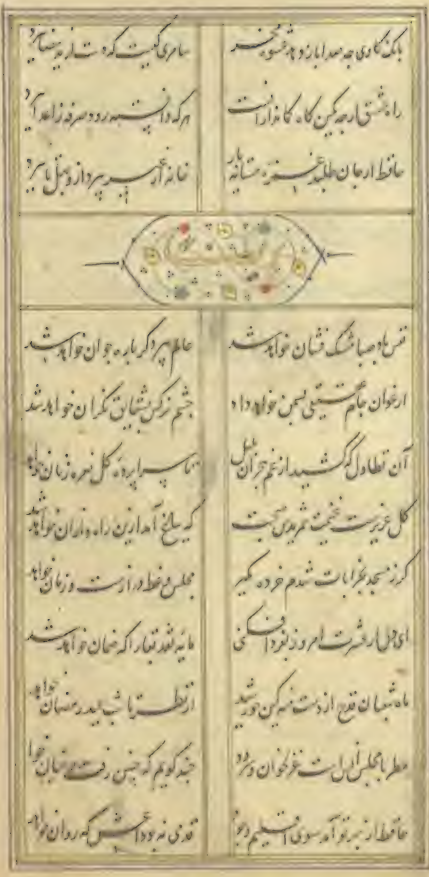 بانک کاوی چه صدا باز دهد عشوه مخر سامری کیست که دست از ید بیضا ببرد
راه عشق ارچه کمین گاه کماندارانست هر که دانسته رود صرفه ز اعدا ببرد
حافظ ار جان طلبد غمزه مستانه یار خانه از غیر بپرداز و بهل تا ببرد
نفس باد صبا مشک فشان خواهد شد عالم پیر دکر باره جوان خواهد شد
ارغوان جام عقیقی بسمن خواهد داد چشم نرکس بشقایق نکران خواهد شد
آن تطاول که کشید از غم هجران بلبل تا سراپرده کل نعره زنان خواهد
کل عزیزست غنیمت شمریدش صحبت که بباغ آمد ازین راه و از آن خواهد شد
کر ز مسجد بخرابات شدم خرده مکیر مجلس وعظ درازست و زمان خواهد
ای دل ار عشرت امروز بفردا فکنی مایه نقد بقا را که ضمان خواهد شد
ماه شعبان قدح از دست منه کین خورشید از نظر تا شب عید رمضان خواهد
مطربا مجلس انس است غزل خوان و سرود چند کویی که چنین رفت و چنان خواهد
حافظ از بهر تو آمد سوی اقلیم وجود قدمی نه بوداعش که روان خواهد